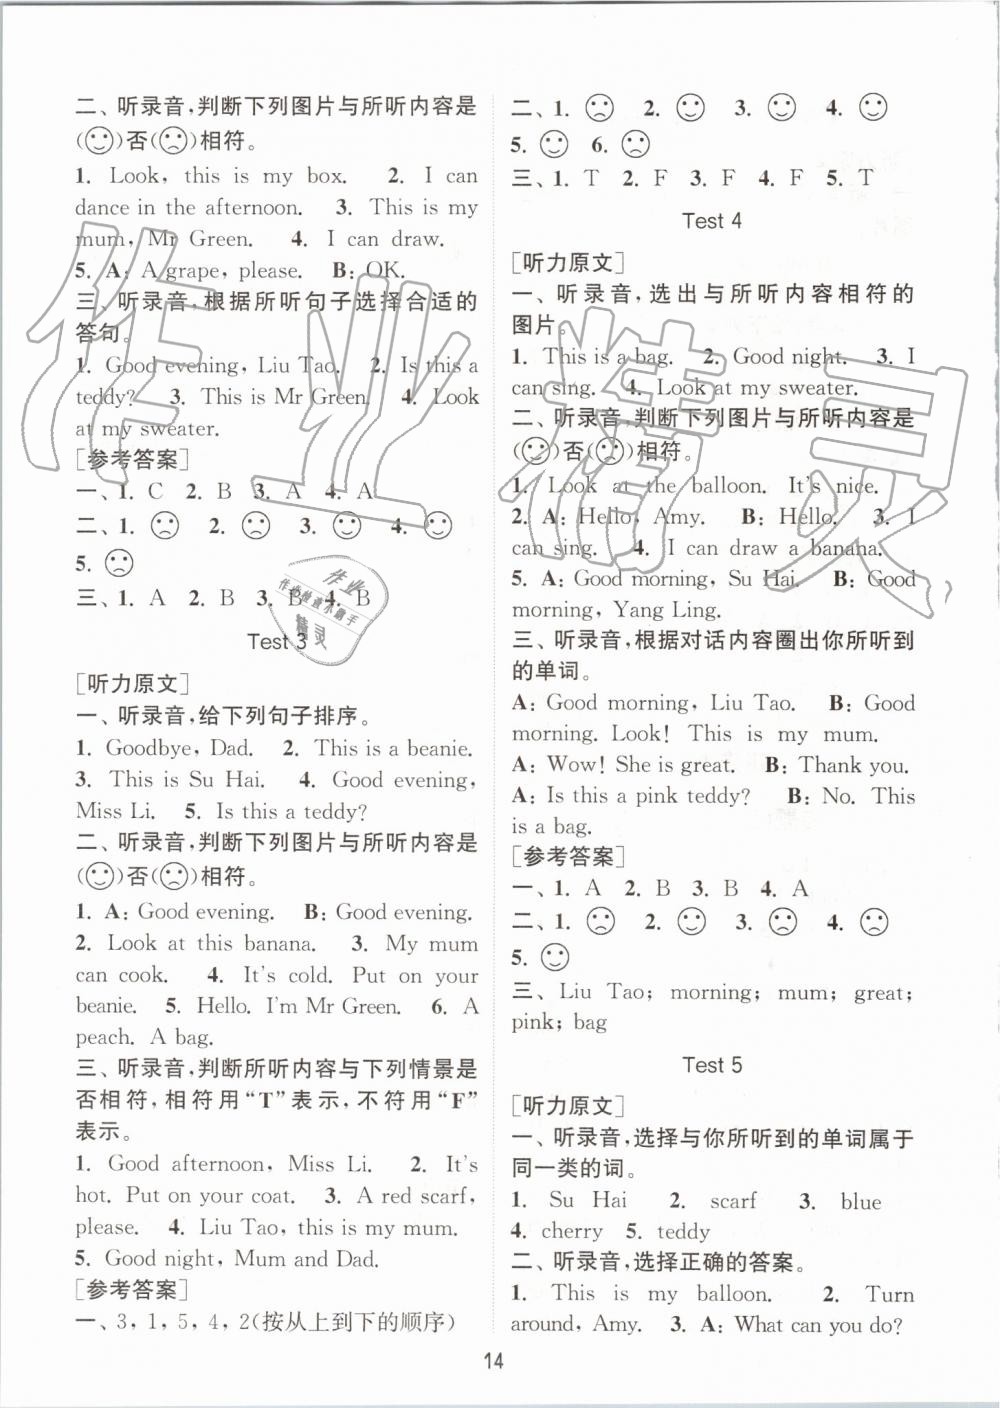 二、听录音,判断下列图片与所听内容是
( )否( )相符。
1. Look, this is my box. 2. I can
dance in the afternoon. 3. This is my
mum, Mr Green. 4. I can draw.
5. A: A grape, please. B: OK.
三、听录音,根据所听句子选择合适的
答句。
1. Good evening, Liu Tao. 2. Is this a
teddy? 3. This is Mr Green. 4. Look
at my sweater.
[参考答案]
一、1. C 2. B 3. A 4. A
二、1. 2. 3. 4.
5.
三、1. A 2. B 3. B 4. B
Test 3
[听力原文]
一、听录音,给下列句子排序。
1. Goodbye, Dad. 2. This is a beanie.
3. This is Su Hai. 4. Good evening,
Miss Li. 5. Is this a teddy?
二、听录音,判断下列图片与所听内容是
( )否( )相符。
1. A: Good evening. B: Good evening.
2. Look at this banana. 3. My mum
can cook. 4. It's cold. Put on your
beanie. 5. Hello. I'm Mr Green. 6. A
peach. A bag.
三、听录音,判断所听内容与下列情景是
否相符,相符用“T”表示,不符用“F”
表示。
1. Good afternoon, Miss Li. 2. It's
hot. Put on your coat. 3. A red scarf,
please. 4. Liu Tao, this is my mum.
5. Good night, Mum and Dad.
[参考答案]
一、3, 1, 5, 4, 2(按从上到下的顺序)
二、1. 2. 3. 4.
5. 6.
三、1. T 2. F 3. F 4. F 5. T
Test 4
[听力原文]
一、听录音,选出与所听内容相符的
图片。
1. This is a bag. 2. Good night. 3. I
can sing. 4. Look at my sweater.
二、听录音,判断下列图片与所听内容是
( )否( )相符。
1. Look at the balloon. It's nice.
2. A: Hello, Amy. B: Hello. 3. I
can sing. 4. I can draw a banana.
5. A: Good morning, Su Hai. B: Good
morning, Yang Ling.
三、听录音,根据对话内容圈出你所听到
的单词。
A: Good morning, Liu Tao. B: Good
morning. Look! This is my mum.
A: Wow! She is great. B: Thank you.
A: Is this a pink teddy? B: No. This
is a bag.
[参考答案]
一、1. A 2. B 3. B 4. A
二、1. 2. 3. 4.
5.
三、Liu Tao; morning; mum; great;
pink; bag
Test 5
[听力原文]
一、听录音,选择与你所听到的单词属于
同一类的词。
1. Su Hai 2. scarf 3. blue
4. cherry 5. teddy
二、听录音,选择正确的答案。
1. This is my balloon. 2. Turn
around, Amy. 3. A: What can you do?
14
作业精灵
作业
作业检查小助手
精灵